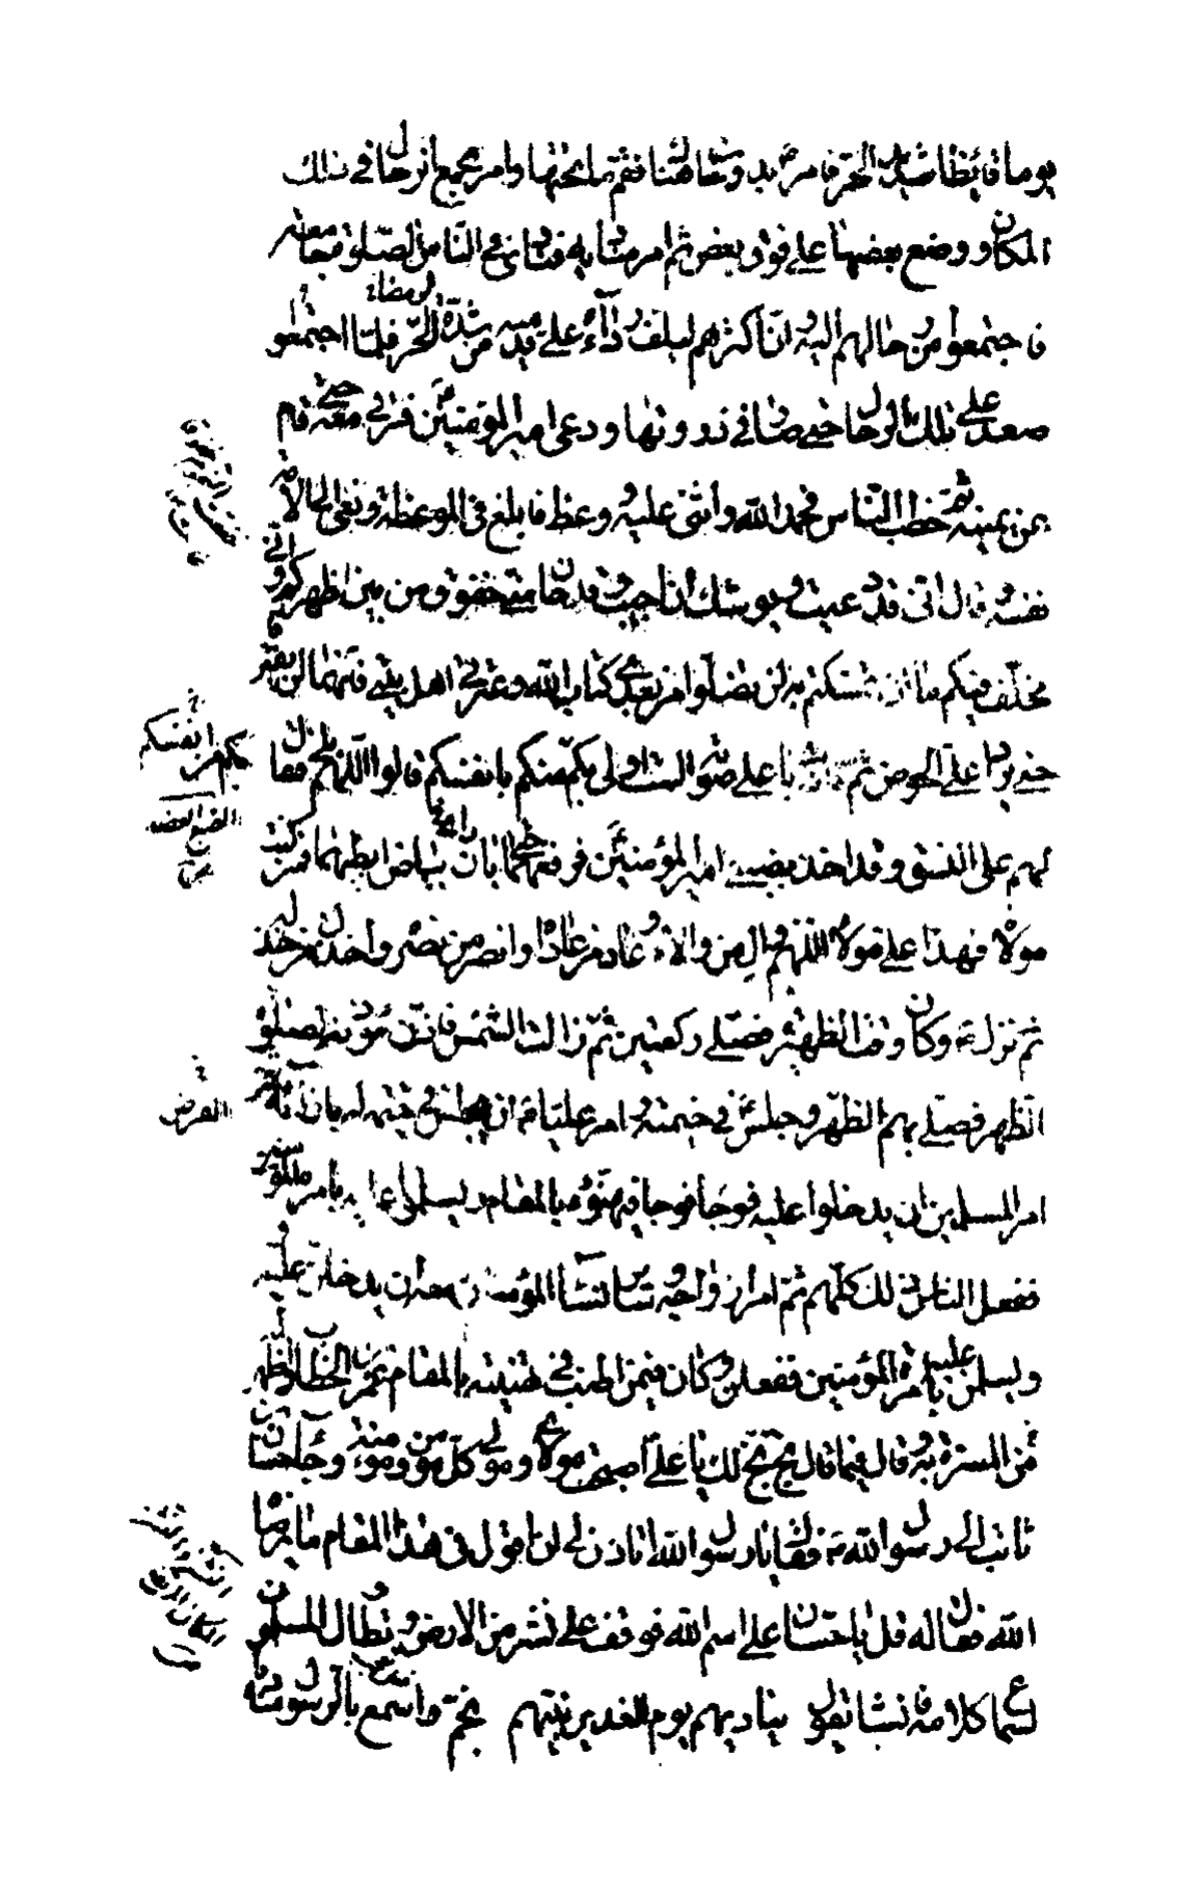 يوما قائظا شديد الحر فامر بدوحات هناك فقم ما تحتها وامر بجمع الرحال في ذلك
المكان ووضع بعضها على فوق بعض ثم امر مناديه فنادى في الناس الصلوة جامعة
فاجتمعوا من رحالهم اليه وان اكثرهم ليلف رداءه على قدميه من شدة الحر فلما اجتمعوا
الرمضاء
صعد على تلك الرحال حتى صار في ذروتها ودعى امير المؤمنين فرقي معه حتى قام
عن يمينه ثم خطب الناس فحمد الله واثنى عليه ووعظ فابلغ في الموعظة ونعى الى الامة
نفسه وقال اني قد دعيت ويوشك ان اجيب وقد حان مني خفوق من بين اظهركم واني
مخلف فيكم ما ان تمسكتم به لن تضلوا من بعدي كتاب الله وعترتي اهل بيتي فانهما لن يفترقا
حتى يردا على الحوض ثم نادى باعلى صوته الست اولى بكم منكم بانفسكم قالوا اللهم بلى فقال
بكم من انفسكم
لهم على النسق وقد اخذ بضبعي امير المؤمنين فرفعهما حتى بان بياض ابطيهما فمن كنت
الضبع العضد
مولاه فهذا علي مولاه اللهم وال من والاه وعاد من عاداه وانصر من نصره واخذل من خذله
ثم نزل وكان وقت الظهيرة فصلى ركعتين ثم زالت الشمس فاذن مؤذنه لصلوة
الظهر فصلى بهم الظهر وجلس في خيمته وامر عليا ان يجلس في خيمة له بازائه ثم
الفرض
امر المسلمين ان يدخلوا عليه فوجا فوجا فيهنؤه بالمقام ويسلموا عليه بامرة المؤمنين
ففعل الناس ذلك كلهم ثم امر ازواجه وساير نساء المؤمنين معه ان يدخلن عليه
ويسلمن عليه بامرة المؤمنين ففعلن وكان فيمن اطنب في تهنيته بالمقام عمر بن الخطاب واظهر
من المسرة به وقال فيما قال بخ بخ لك يا علي اصبحت مولاي ومولى كل مؤمن ومؤمنة وجاء حسان
بن ثابت الى رسول الله فقال يا رسول الله اتاذن لي ان اقول في هذا المقام ما يرضاه
الله فقال له قل يا حسان على اسم الله فوقف على نشز من الارض وتطاول المسلمون
لسماع كلامه فانشا يقول يناديهم يوم الغدير نبيهم بخم واسمع بالرسول مناديا